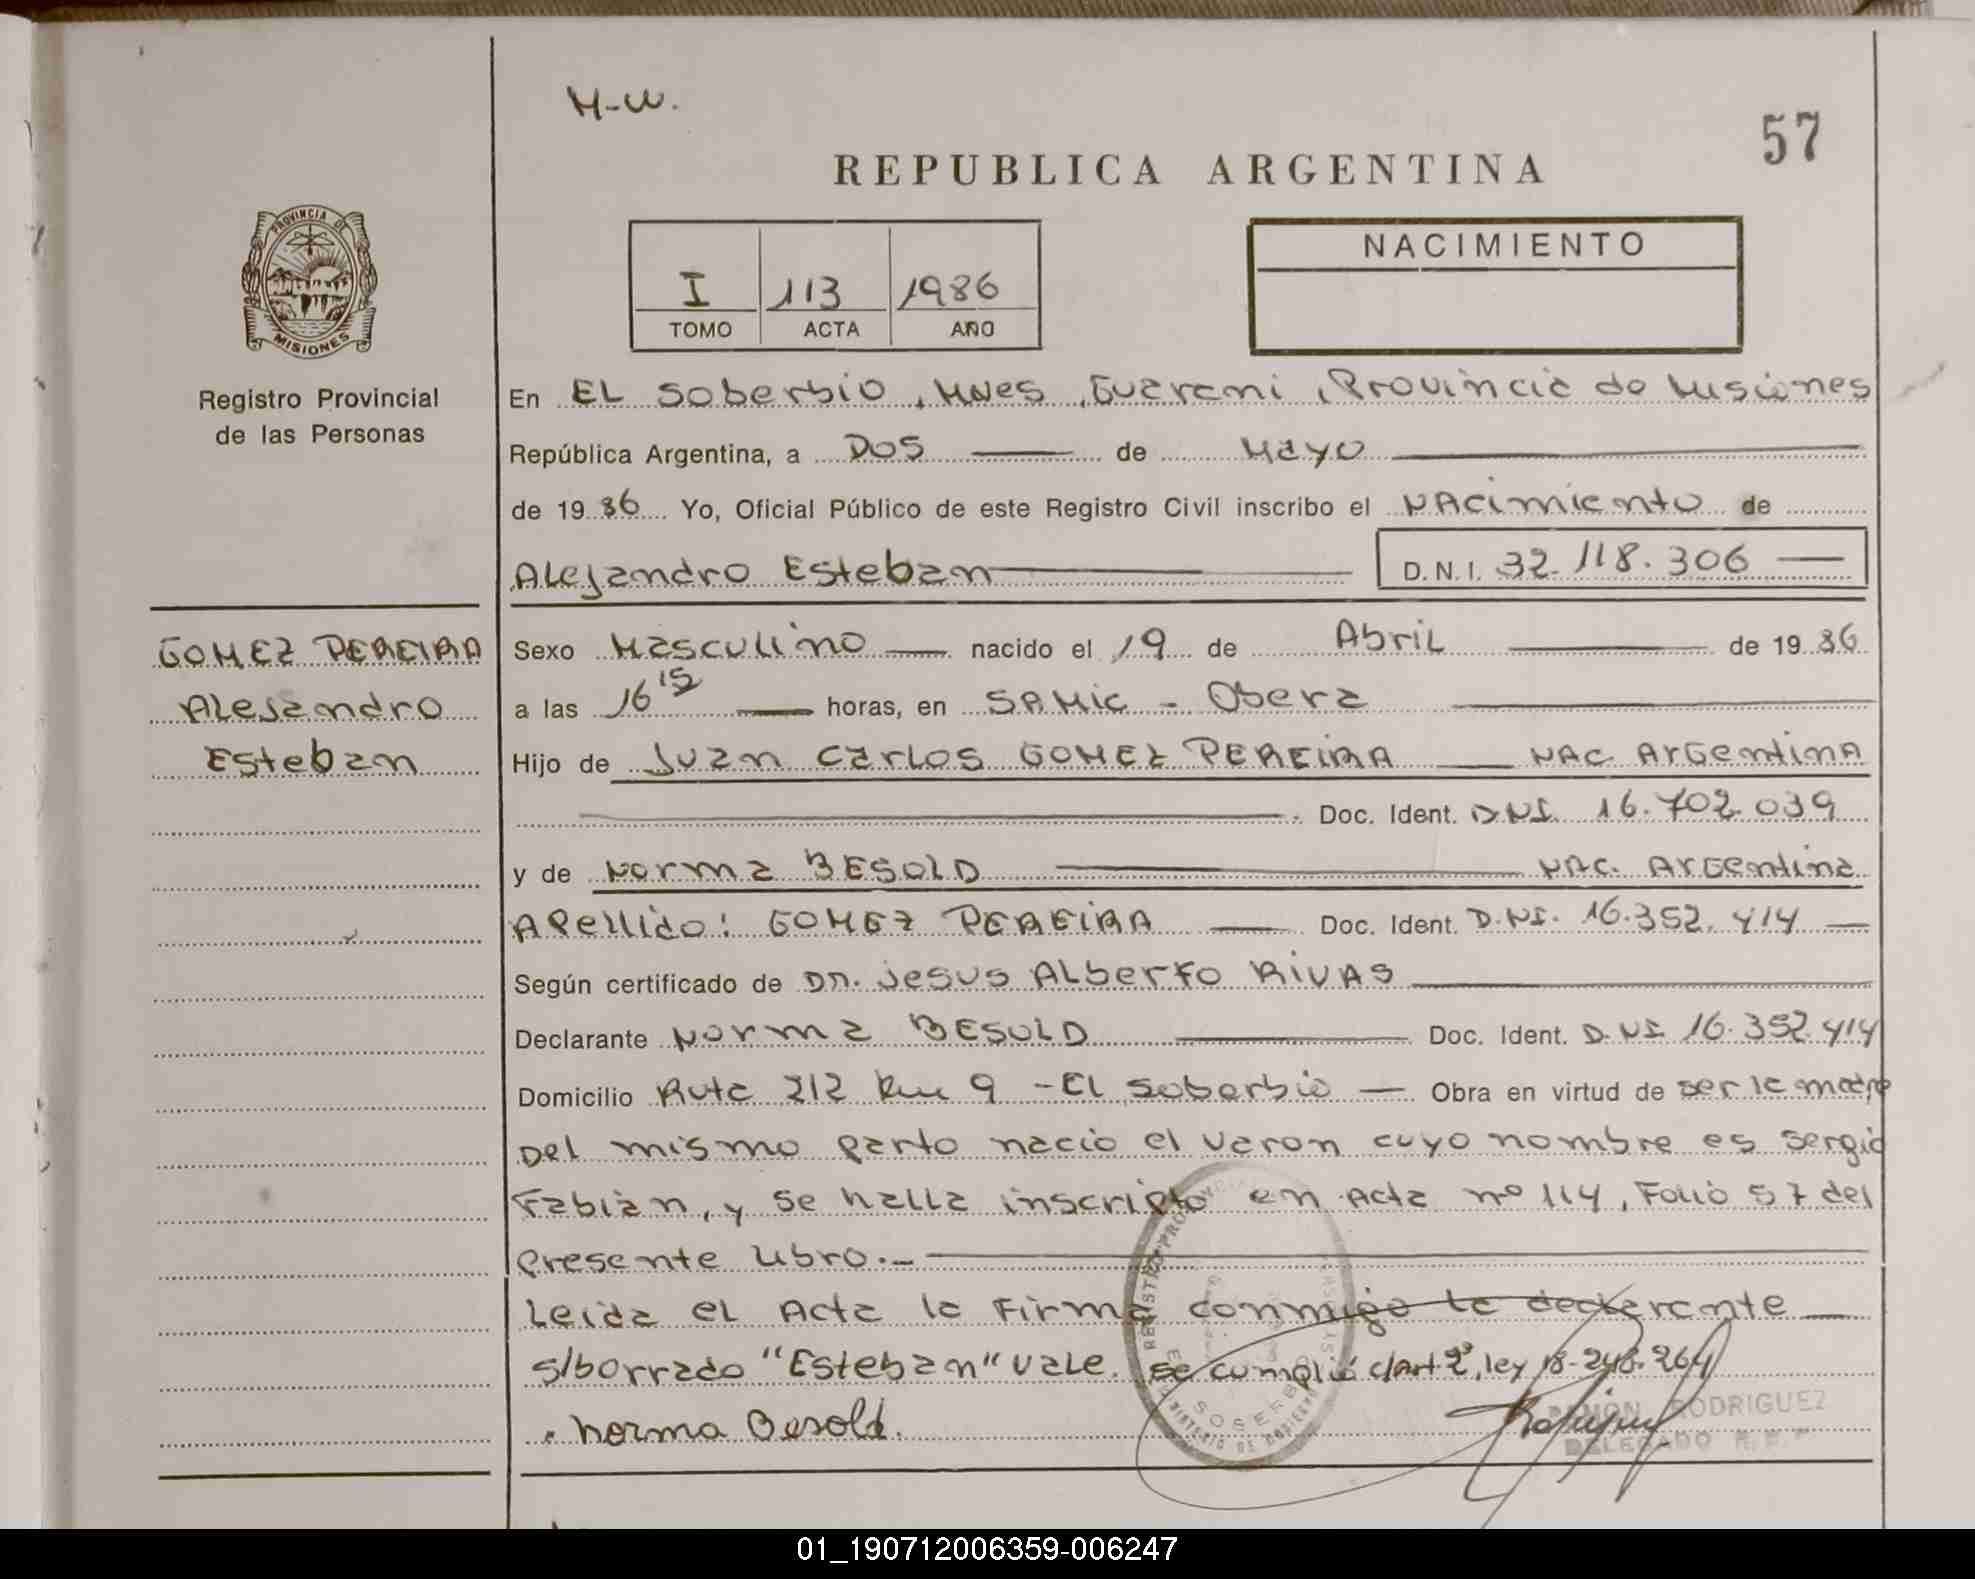 M-W.
57
REPUBLICA ARGENTINA
PROVINCIA DE
MISIONES
I 113 1986
TOMO ACTA AÑO
NACIMIENTO
Registro Provincial
de las Personas
En EL Soberbio, Mnes, Guarani, Provincia de Misiones
República Argentina, a DOS de Mayo
de 1986 Yo, Oficial Público de este Registro Civil inscribo el NAcimiento de
Alejandro Esteban D.N.I. 32.118.306
GOMEZ PEREIRA
Alejandro
Esteban
Sexo Masculino nacido el 19 de Abril de 1986
a las 16 15 horas, en SAMic - Obera
Hijo de Juan Carlos GOMEZ PEREIRA NAC Argentina
Doc. Ident. DNI. 16.702.039
y de Norma BESOLD NAC. Argentina
Apellido: GOMEZ PEREIRA Doc. Ident. D.NI. 16.352.414
Según certificado de DR. Jesus Alberto Rivas
Declarante Norma BESOLD Doc. Ident. D.NI 16.352.414
Domicilio Ruta 212 Km 9 - El Soberbio Obra en virtud de ser la madre
Del mismo parto nacio el varon cuyo nombre es Sergio
Fabian, y se halla inscripto en Acta nº 114, Folio 57 del
presente libro.-
Leida el Acta la firma conmigo la declarante
s/borrado "Esteban" vale. se cumplió c/art 2º, ley 18.248.264
Norma Besold.
RAMON RODRIGUEZ
DELEGADO R.P.P
01_190712006359-006247